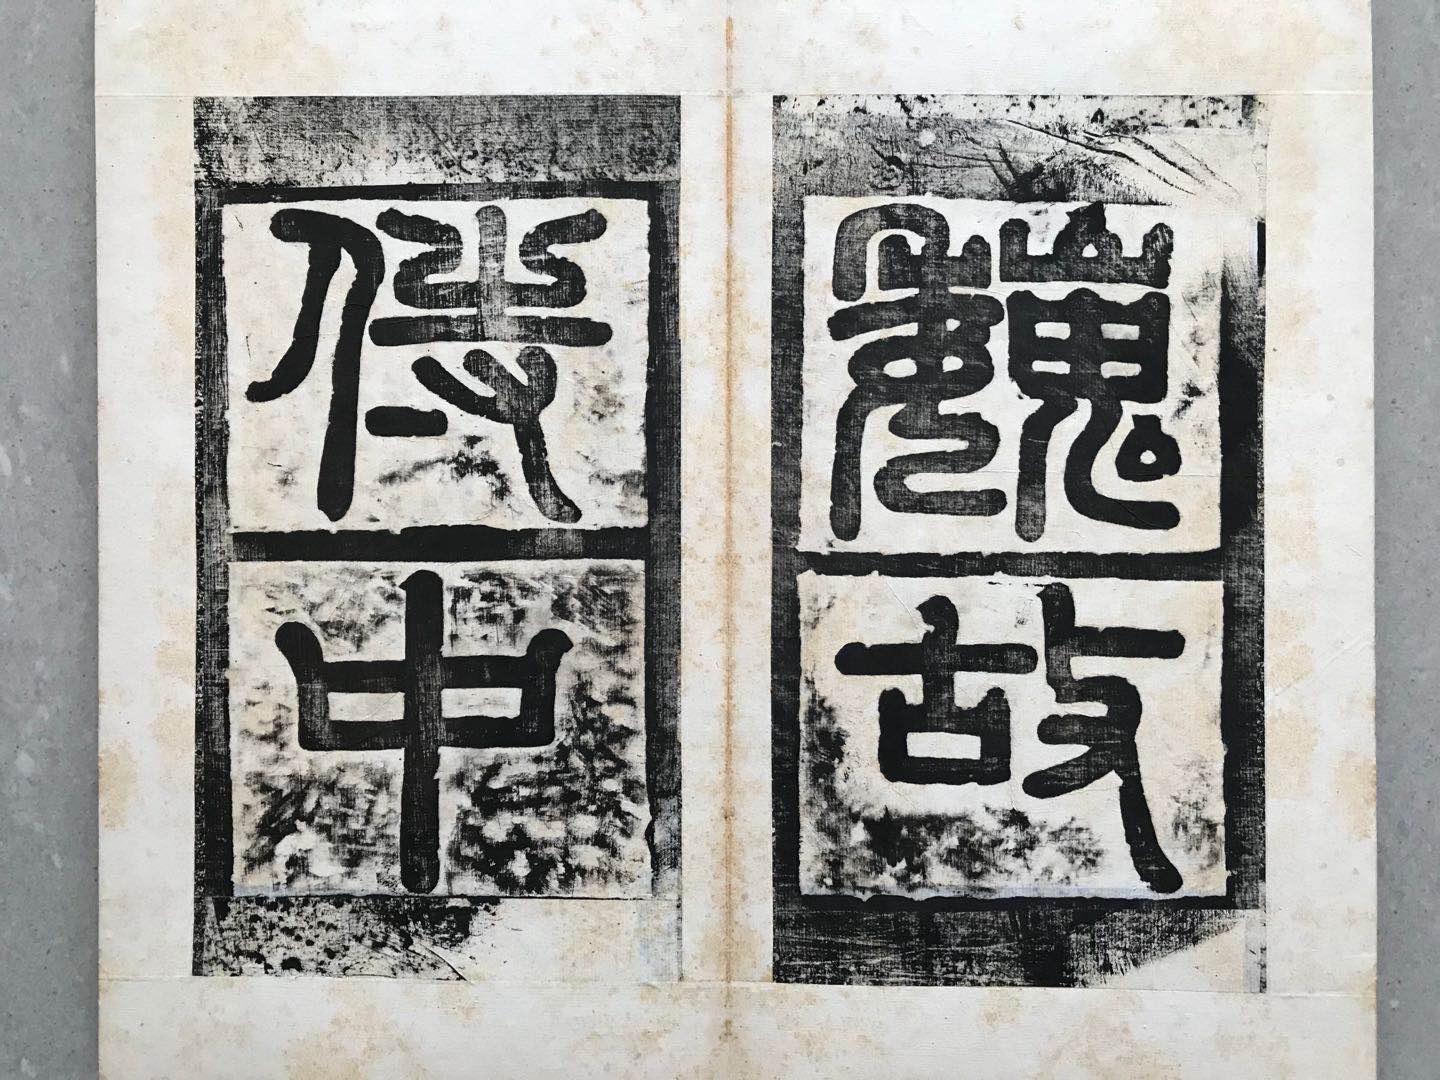 魏故
侍中